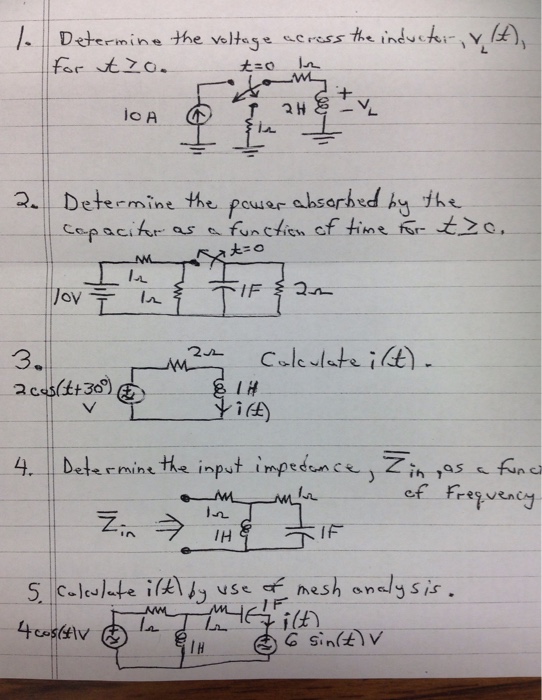 1. Determine the voltage across the inductor, v_L(t),
for t≥0.
t=0 1Ω
10A 1Ω 2H + - V_L
2. Determine the power absorbed by the
capacitor as a function of time for t≥0.
t=0
10V 1Ω 1Ω 1F 2Ω
3. 2Ω Calculate i(t).
2cos(t+30°) V 1H
i(t)
4. Determine the input impedance, Z̅in, as a func
of Frequency
Z̅in ⇒ 1Ω 1H 1Ω 1F
5. Calculate i(t) by use of mesh analysis.
4cos(t)V 1Ω 1H 1Ω 1F i(t)
6 sin(t)V